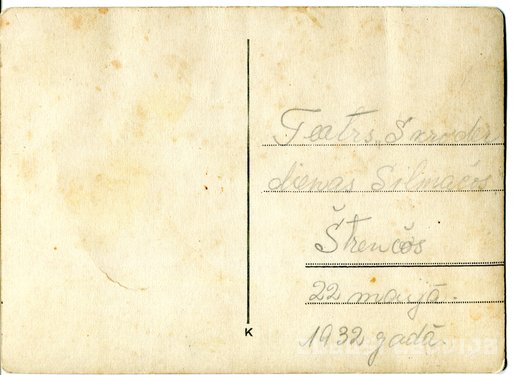 Teatrs, Skroder
dienas Silmačos
Štrenčós
22 maijā.
1932 gadā.
K